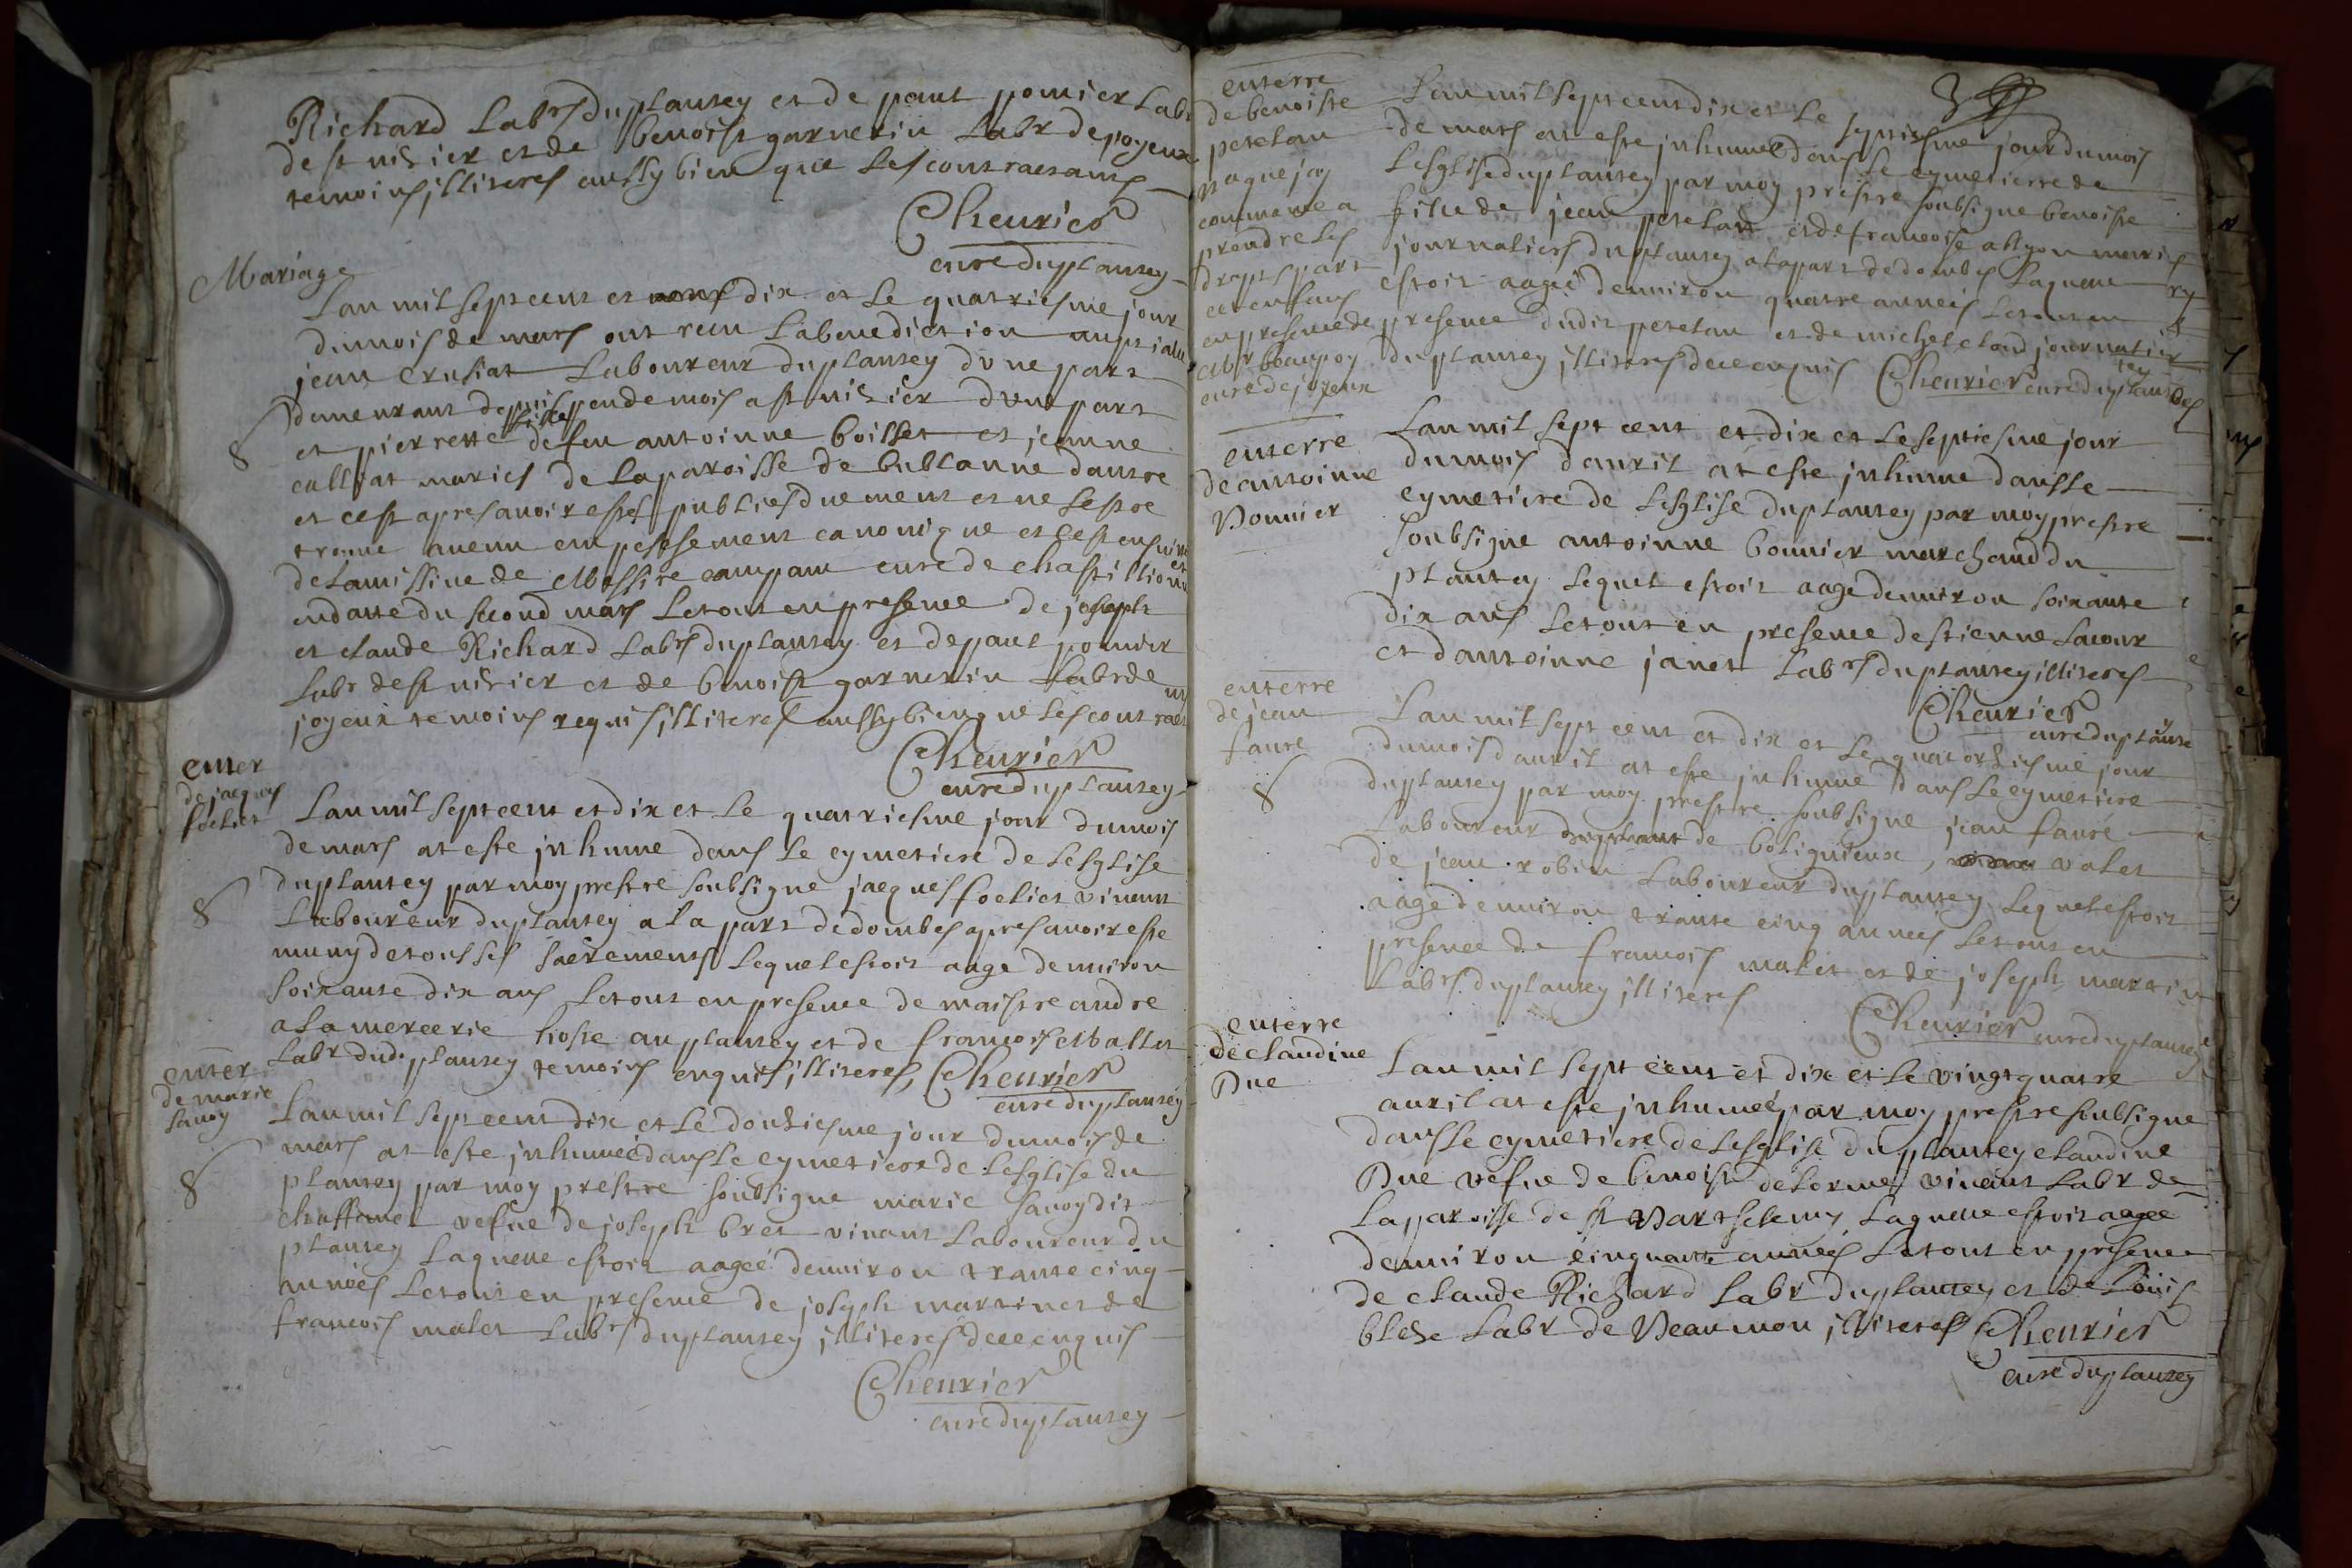 Richard Labrs du plantey et de paul pomier Labr
de st nisier et de benoist garnerin Labr de joyeux
temoins illiteres aussy bien que les contractans
Cheurier
cure du plantey
Mariage
Lan mil sept cent et dix et le quatriesme jour
du mois de mars ont receu la benediction nuptiale
jean crusiat Laboureur du plantey dune part
demeurant depuis peu de mois a st nisier dune part
et pierrette fille de feu antoinne boisset et jeanne
maries de la paroisse de bublanne dautre
et cest apres avoir estes publies duement et ne sestre
trouue aucun empeschement canonique et cest ensuitte
de la missiue de Messire campan cure de chastillion
en datte du second mars Le tout en presence de joseph
et claude Richard Labrs du plantey et de paul pomier
Labr de st nisier et de benoist garnerin Labr de
joyeux temoins requis illiteres aussy bien que les contract
Cheurier
cure du plantey
enter
de jacques
foeliet
Lan mil sept cent et dix et le quatriesme jour du mois
de mars at este inhume dans le cymetiere de lesglise
du plantey par moy prestre soubsigne jacques foeliet viuant
Laboureur du plantey a la part de dombes apres auoir este
muny de tous les sacrements lequel estoit aage denuiron
soixante dix ans Le tout en presence de maistre andre
a la mercerie hoste au plantey et de francois Mallet
Labr dud. plantey temoins enquis illiteres Cheurier
cure du plantey
enter
de marie
sauoy
Lan mil sept cent dix et le douziesme jour du mois de
mars at este inhumeé dans le cymetiere de lesglise du
plantey par moy prestre soubsigne marie sauoy dit
vefue de joseph bret viuant Laboureur du
plantey Laquelle estoit aageé denuiron trante cinq
anneés Le tout en presence de joseph martinet de
francois malet Labrs du plantey illiteres de ce enquis
Cheurier
cure du plantey
enterre
de benoiste
peretan
jay
commance a
prendre les
part
et enfans
en presence de
Mr beaupoy
cure de joyeux
Lan mil sept cent dix et le septiesme jour du mois
de mars at este inhumeé dans le cymetierre de
Lesglise du plantey par moy prestre soubsigne benoiste
fille de jean peretan et de francoise maries
journaliers du plantey a la part de dombes Laquelle
estoit aageé denuiron quatre anneés Le tout en
presence dudit peretan et de michel cland journalier
du plantey illiteres de ce enquis Cheurier cure du plantey
enterre
de antoinne
Bonnier
Lan mil sept cent et dix et le septiesme jour
du mois dauril at este inhume dans le
cymetiere de Lesglise du plantey par moy prestre
soubsigne antoinne bonnier marchand du
plantey lequel estoit aage denuiron soixante
dix ans Le tout en presence destienne Lacour
et dantoinne janet Labrs du plantey illiteres
Cheurier
cure du plantey
enterre
de jean
faure
Lan mil sept cent et dix et le quatorziesme jour
du mois dauril at este inhume dans le cymetiere
du plantey par moy prestre soubsigne jean faure
Laboureur de boligneux, valet
de jean robin Laboureur du plantey lequel estoit
aage denuiron trante cinq anneés Le tout en
presence de francois malet et de joseph martin
Labrs du plantey illiteres
Cheurier cure du plantey
enterre
de claudine
Due
Lan mil sept cent et dix et le vingt quatre
auril at este inhumeé par moy prestre soubsigne
dans le cymetiere de Lesglise du plantey claudine
Due vefue de benoist delorme viuant Labr de
La paroisse de st Barthelemy Laquelle estoit aageé
denuiron cinquante anneés Le tout en presence
de claude Richard Labr du plantey et de Louis
Labr de illiteres Cheurier
cure du plantey